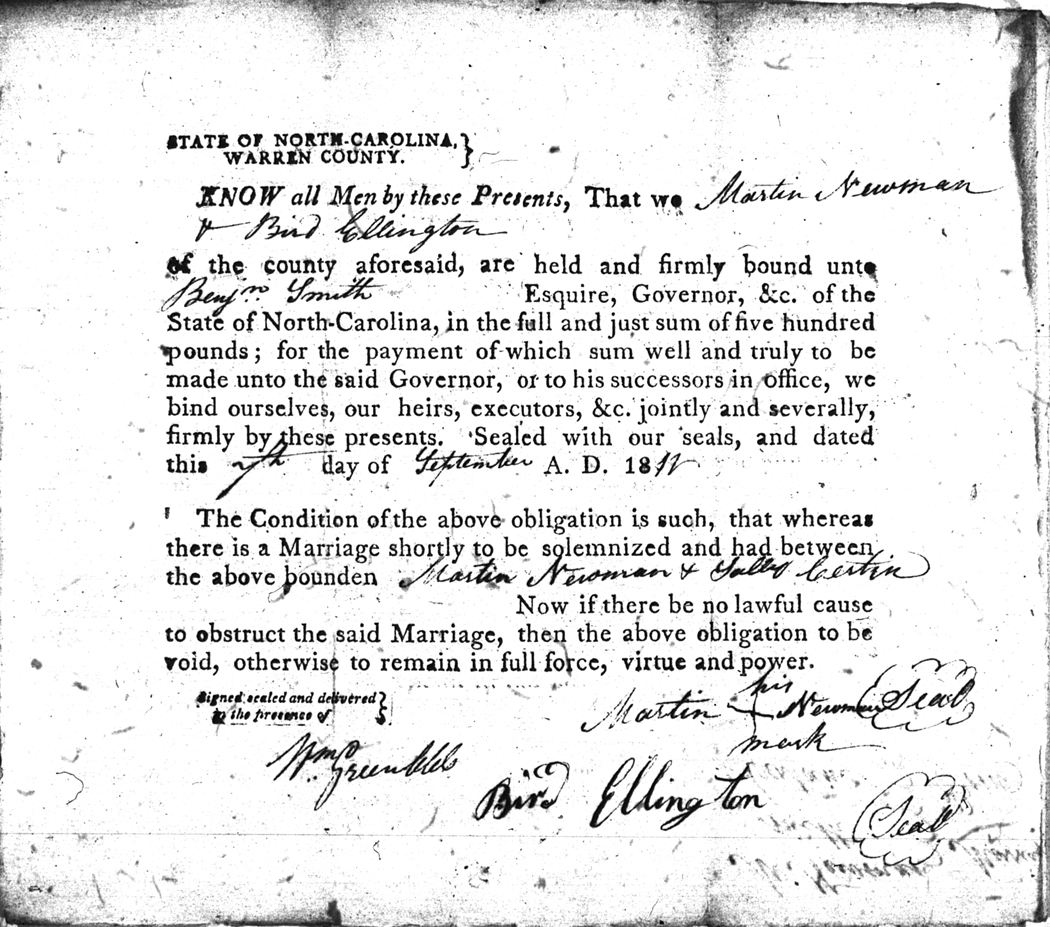 STATE OF NORTH-CAROLINA, }
WARREN COUNTY.
KNOW all Men by these Presents, That we Martin Newman
& Bird Ellington
of the county aforesaid, are held and firmly bound unto
Benjn. Smith Esquire, Governor, &c. of the
State of North-Carolina, in the full and just sum of five hundred
pounds; for the payment of which sum well and truly to be
made unto the said Governor, or to his successors in office, we
bind ourselves, our heirs, executors, &c. jointly and severally,
firmly by these presents. Sealed with our seals, and dated
this 7th day of September A. D. 181
The Condition of the above obligation is such, that whereas
there is a Marriage shortly to be solemnized and had between
the above bounden Martin Newman & Sally
Now if there be no lawful cause
to obstruct the said Marriage, then the above obligation to be
void, otherwise to remain in full force, virtue and power.
Signed sealed and delivered }
in the presence of
his
Martin Newman Seal
mark
Wm. Green
Bird Ellington Seal